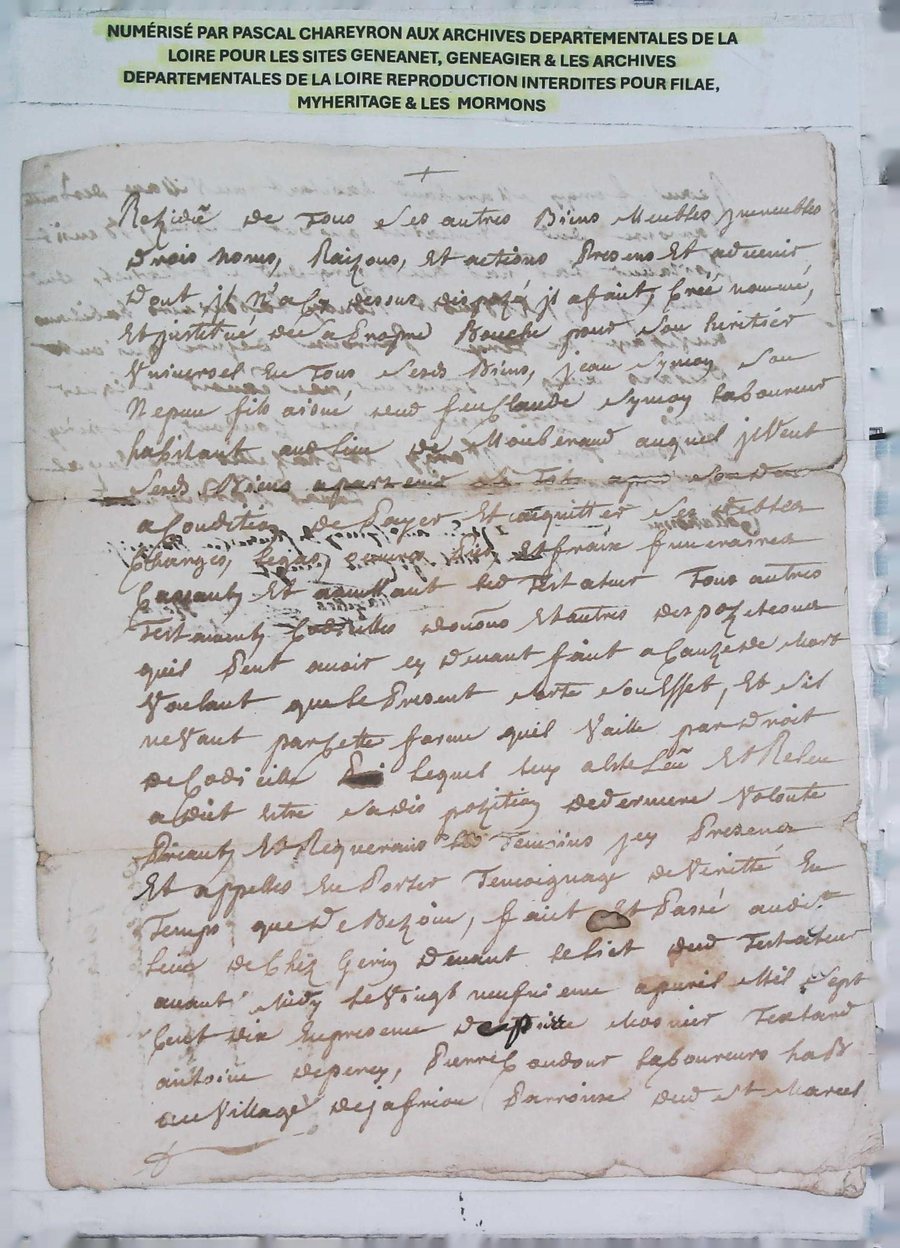 NUMÉRISÉ PAR PASCAL CHAREYRON AUX ARCHIVES DEPARTEMENTALES DE LA
LOIRE POUR LES SITES GENEANET, GENEAGIER & LES ARCHIVES
DEPARTEMENTALES DE LA LOIRE REPRODUCTION INTERDITES POUR FILAE,
MYHERITAGE & LES MORMONS
de Tous Ses autres Biens Meubles jmmeubles
drois noms, Raizons, Et actions Presens Et advenir
Dont jl N'a Cy dessus dispozé jl a faict, Créé nommé,
Et justitue de sa Bouche pour Son heritier
Universel En Tous Sesds Biens, jean Symon Son
Nepveu fils aisné feu Claude Symon laboureur
habitant au lieu de auquel jl Veut
Sesds Biens
a Condition de Payer Et acquitter Ses debtes
Charges, legas, Et fraix funeraires
Cassant Et led Testateur Tous autres
Testaments Codicilles donōns Et autres dispozitions
quil Peut avoir cy devant faict a Cauze de Mort
Voulant que le Present Sorte Son Effet, Et Sil
ne Vaut par Cette forme quil Vaille par Droit
de Codicille lequel luy a Esté Leu Et Releu
a dict Estre Sa dispozition de derniere Volonté
Priant Et Requerant Temoins jcy Presens
Et appellés En Porter Temoignage de Veritté En
Temps que de Bezoin, faict Et Passé audit
lieu de Chez Gerin devant le lict dud Testateur
avant Midy le Vingt neufvieme apvril Mil Sept
Cent dix En presence de Mosnier Texland
antoine deperey, Pierre Coudour laboureurs hab
au Village de jafriou Parroisse dud St Marcel